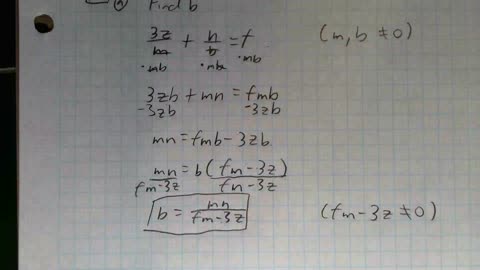 Find b
3z/m + n/b = f (m, b ≠ 0)
·mb ·mb ·mb
3zb + mn = fmb
-3zb -3zb
mn = fmb - 3zb
mn/fm-3z = b(fm-3z)/fm-3z
b = mn/fm-3z (fm-3z ≠ 0)